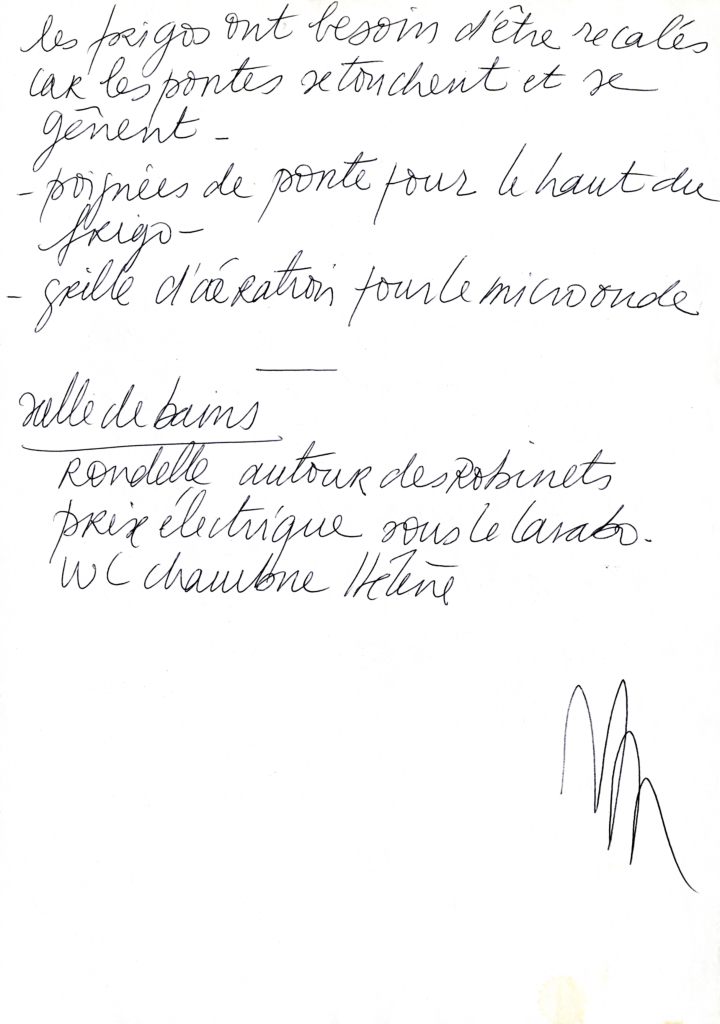 les frigos ont besoin d'être recalés
car les portes se touchent et se
gênent -
- poignées de porte pour le haut du
frigo -
- grille d'aération pour le micro onde
salle de bains
Rondelle autour des Robinets
prix électrique sous le lavabo.
WC chambre Hélène